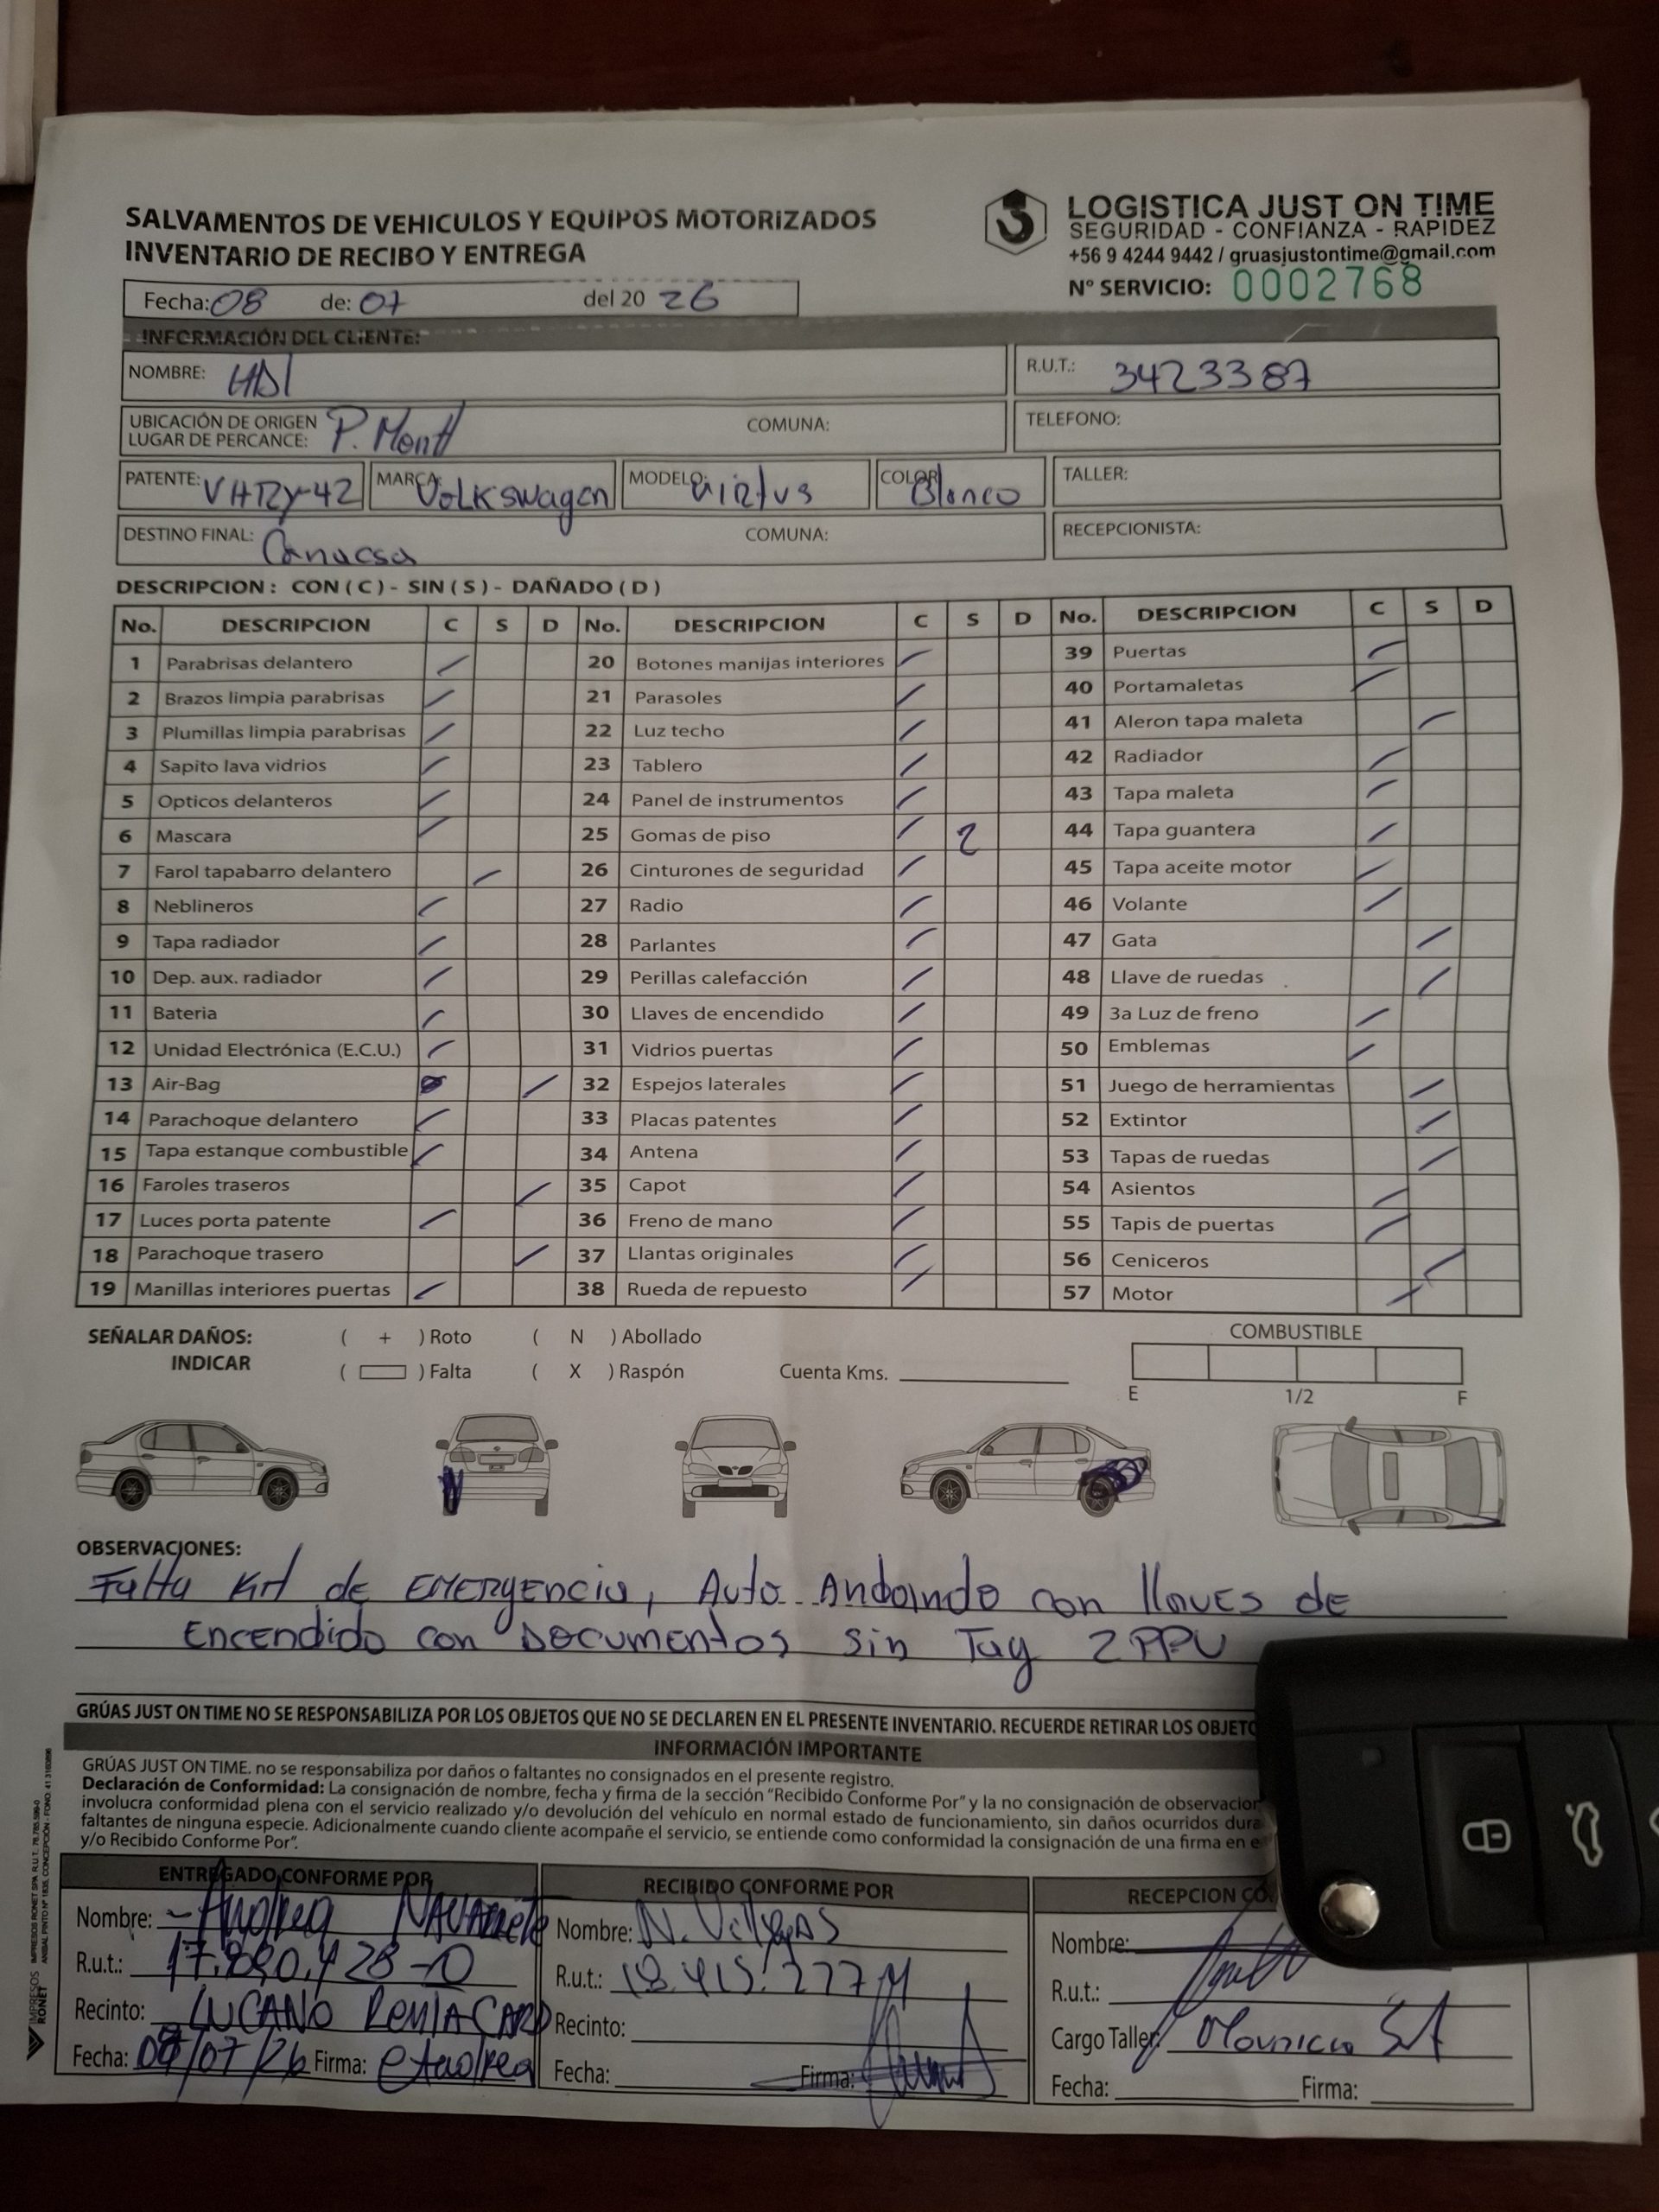 SALVAMENTOS DE VEHICULOS Y EQUIPOS MOTORIZADOS
INVENTARIO DE RECIBO Y ENTREGA
LOGISTICA JUST ON TIME
SEGURIDAD - CONFIANZA - RAPIDEZ
+56 9 4244 9442 / gruasjustontime@gmail.com
N° SERVICIO: 0002768
Fecha: 08 de: 07 del 20 26
INFORMACIÓN DEL CLIENTE:
NOMBRE: HDI R.U.T.: 3423387
UBICACIÓN DE ORIGEN
LUGAR DE PERCANCE: P. Montt COMUNA: TELEFONO:
PATENTE: VHRY-42 MARCA: Volkswagen MODELO: Virtus COLOR: Blanco TALLER:
DESTINO FINAL: COMUNA: RECEPCIONISTA:
DESCRIPCION : CON ( C ) - SIN ( S ) - DAÑADO ( D )
No. DESCRIPCION C S D No. DESCRIPCION C S D No. DESCRIPCION C S D
1 Parabrisas delantero 20 Botones manijas interiores 39 Puertas
2 Brazos limpia parabrisas 21 Parasoles 40 Portamaletas
3 Plumillas limpia parabrisas 22 Luz techo 41 Aleron tapa maleta
4 Sapito lava vidrios 23 Tablero 42 Radiador
5 Opticos delanteros 24 Panel de instrumentos 43 Tapa maleta
6 Mascara 25 Gomas de piso 2 44 Tapa guantera
7 Farol tapabarro delantero 26 Cinturones de seguridad 45 Tapa aceite motor
8 Neblineros 27 Radio 46 Volante
9 Tapa radiador 28 Parlantes 47 Gata
10 Dep. aux. radiador 29 Perillas calefacción 48 Llave de ruedas
11 Bateria 30 Llaves de encendido 49 3a Luz de freno
12 Unidad Electrónica (E.C.U.) 31 Vidrios puertas 50 Emblemas
13 Air-Bag 32 Espejos laterales 51 Juego de herramientas
14 Parachoque delantero 33 Placas patentes 52 Extintor
15 Tapa estanque combustible 34 Antena 53 Tapas de ruedas
16 Faroles traseros 35 Capot 54 Asientos
17 Luces porta patente 36 Freno de mano 55 Tapis de puertas
18 Parachoque trasero 37 Llantas originales 56 Ceniceros
19 Manillas interiores puertas 38 Rueda de repuesto 57 Motor
SEÑALAR DAÑOS: ( + ) Roto ( N ) Abollado COMBUSTIBLE
INDICAR ( ) Falta ( X ) Raspón Cuenta Kms. E 1/2 F
N
OBSERVACIONES:
Falta Kit de EMERgencia, Auto Andando con llaves de
Encendido con Documentos sin Tag 2 PPU
GRÚAS JUST ON TIME NO SE RESPONSABILIZA POR LOS OBJETOS QUE NO SE DECLAREN EN EL PRESENTE INVENTARIO. RECUERDE RETIRAR LOS OBJETO
INFORMACIÓN IMPORTANTE
GRÚAS JUST ON TIME. no se responsabiliza por daños o faltantes no consignados en el presente registro.
Declaración de Conformidad: La consignación de nombre, fecha y firma de la sección "Recibido Conforme Por" y la no consignación de observacion
involucra conformidad plena con el servicio realizado y/o devolución del vehículo en normal estado de funcionamiento, sin daños ocurridos dura
faltantes de ninguna especie. Adicionalmente cuando cliente acompañe el servicio, se entiende como conformidad la consignación de una firma en e
y/o Recibido Conforme Por".
ENTREGADO CONFORME POR
Nombre: Andrea NAVARRETE
R.u.t.: 17.890.428-0
Recinto: LUCANO RentACAR
Fecha: 08/07/26 Firma: Andrea
RECIBIDO CONFORME POR
Nombre: N. Villegas
R.u.t.:
Recinto:
Fecha: Firma:
RECEPCION CO
Nombre:
R.u.t.:
Cargo Taller:
Fecha: Firma:
IMPRESOS RONET